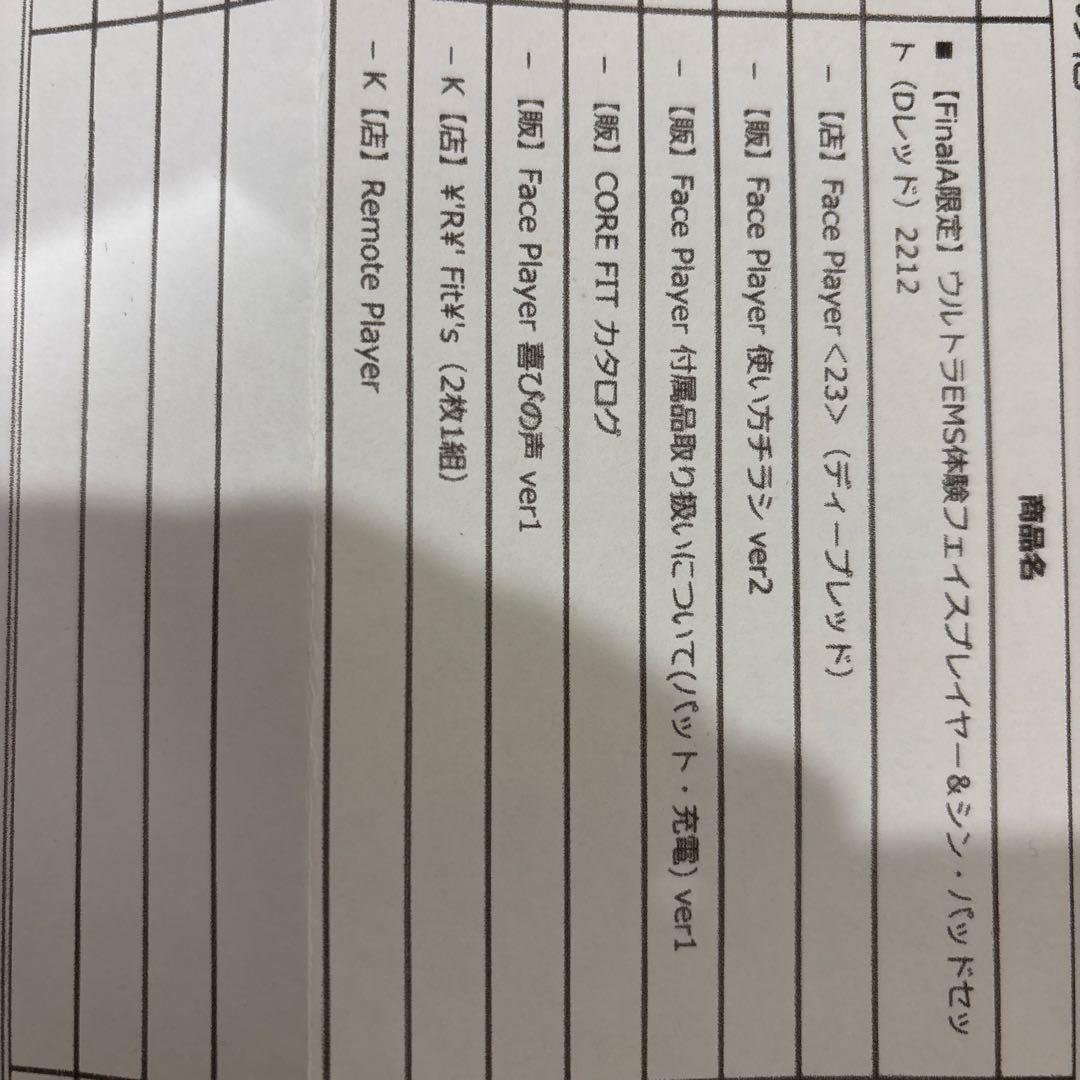 商品名
■ 【FinalA限定】ウルトラEMS体験フェイスプレイヤー&シン・パッドセッ
ト（Dレッド）2212
- 【店】Face Player<23>（ディープレッド）
- 【販】Face Player 使い方チラシ ver2
- 【販】Face Player 付属品取り扱いについて(パット・充電) ver1
- 【販】CORE FIT カタログ
- 【販】Face Player 喜びの声 ver1
- K【店】¥'R¥' Fit¥'s（2枚1組）
- K【店】Remote Player